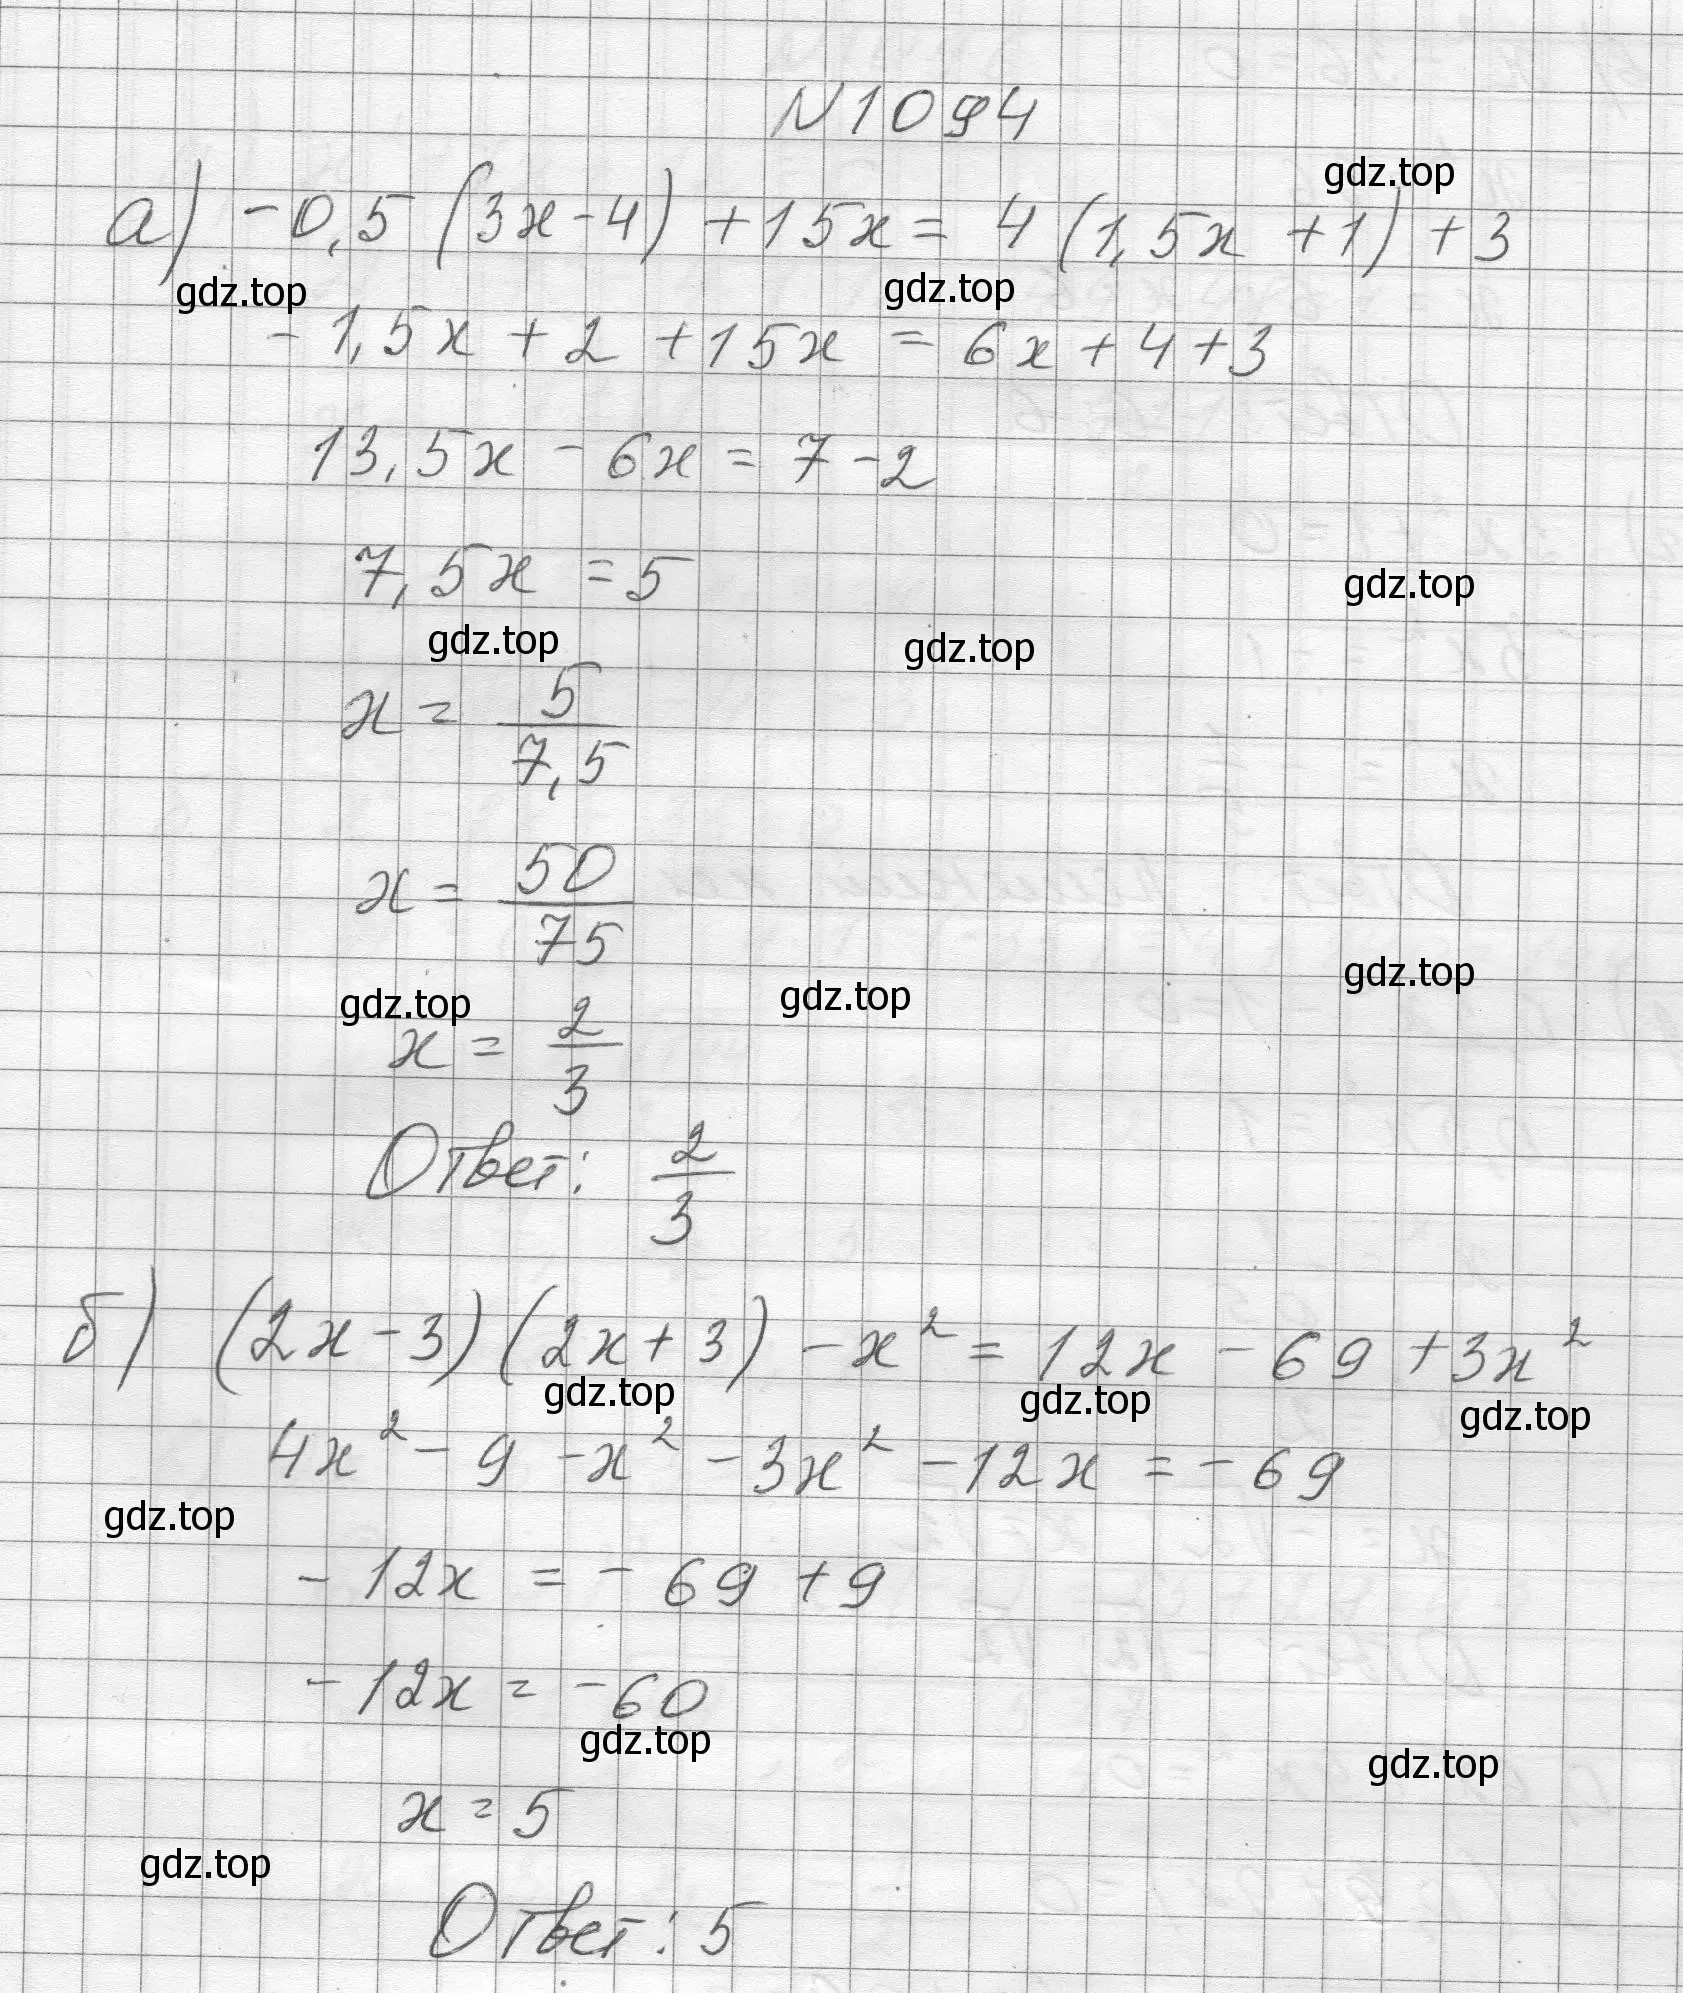 N1094
gdz.top
а) -0,5 (3x-4) +15x = 4 (1,5x +1) +3
gdz.top gdz.top
-1,5x + 2 +15x = 6x + 4 +3
13,5x - 6x = 7-2
7,5x = 5
gdz.top
gdz.top gdz.top
x = 5/7,5
x = 50/75
gdz.top
gdz.top gdz.top
x = 2/3
Ответ: 2/3
б) (2x-3) (2x+3) - x² = 12x - 69 + 3x²
gdz.top gdz.top gdz.top
4x² - 9 - x² - 3x² - 12x = -69
gdz.top
-12x = -69 +9
-12x = -60
gdz.top gdz.top
x = 5
gdz.top
Ответ: 5